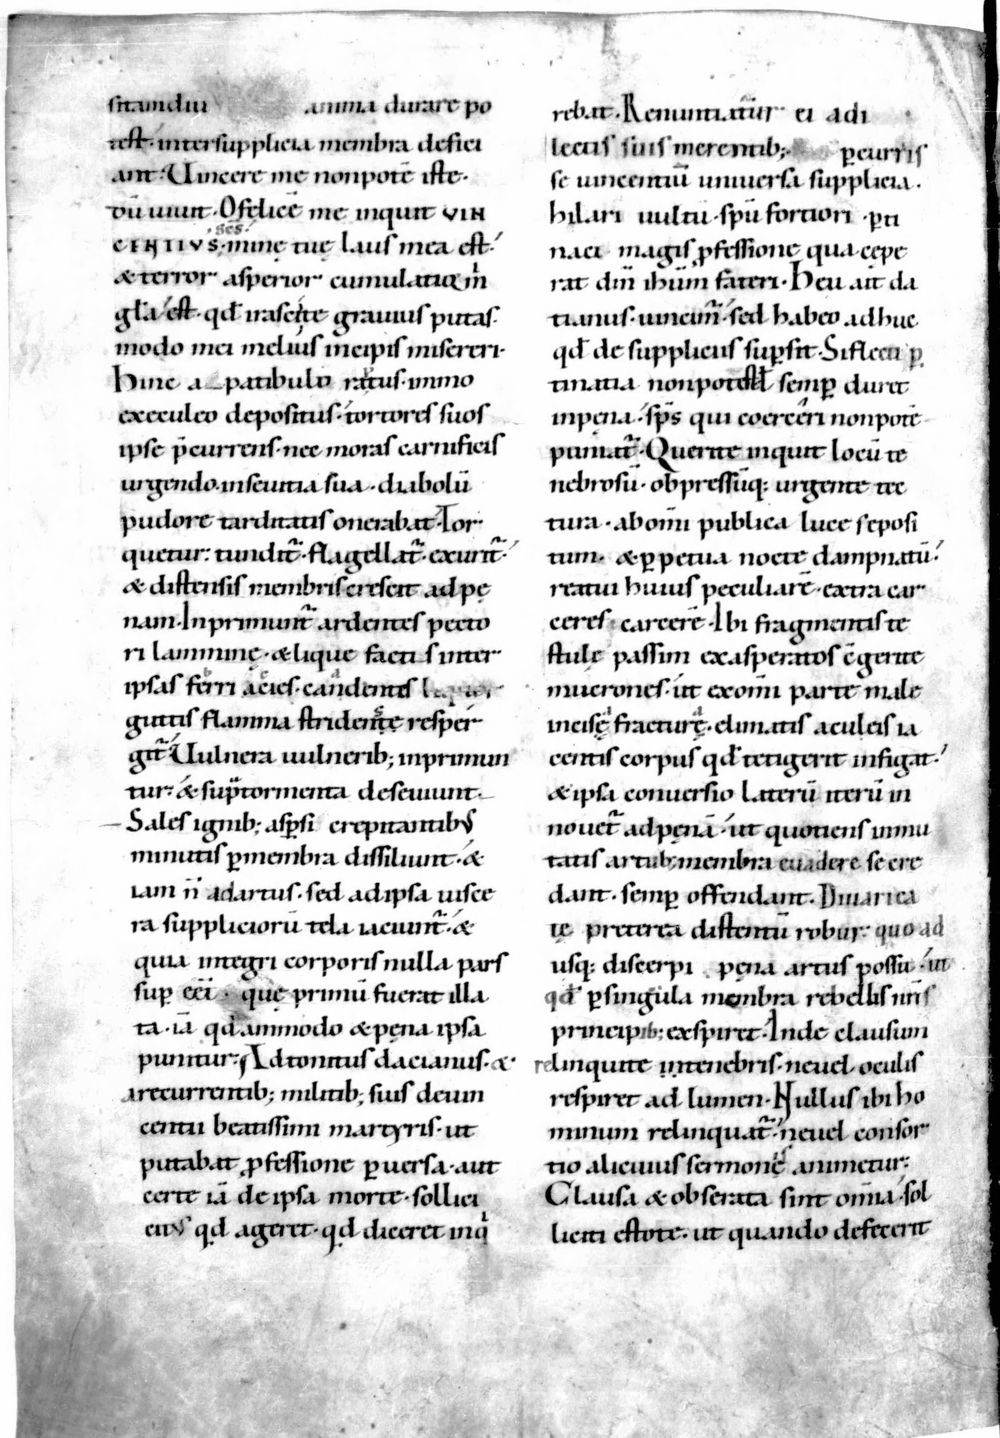 sitamdiu anima durare po
test· intersupplicia membra defici
ant· Uincere me nonpotẽ iste·
dũ uiuit· O felicẽ me inquit VIN
CENTIVS· minę tuę laus mea est·
& terror asperior cumulatiq m̃
gła est· qđ irasceris grauius putas·
modo mei melius incipis misereri·
Hinc a patibulo raptus· immo
execuleo depositus· tortores suos
ipse p̄currens· nec moras carnificis
urgendo inseuitia sua· diabolũ
pudore tarditatis onerabat· Tor
quetur· tundit̃· flagellat̃· exurit̃·
& distensis membris crescit adpę
nam· Inprimunt̃ ardentes pecto
ri lamminę· & lique factis inter
ipsas ferri acies· candentis
guttis flamma stridente resper
git̃· Uulnera uulnerib; inprimun
tur· & sup̃ tormenta deseuiunt·
Sales ignib; asp̱si crepitantibus
minutis p̱membra dissiliunt· &
iam ñ adartus· sed adipsa uisce
ra suppliciorũ tela iaciunt̃· &
quia integri corporis nulla pars
sup̱ eẽt· quę primũ fuerat illa
ta· iã qđ ammodo & pęna ipsa
punitur· Adtonitus dacianus· &
arecurrentib; militib; suis deuin
centii beatissimi martyris· ut
putabat p̱fessione p̱uersa· aut
certe iã deipsa morte· sollici
eius qđ ageret· qđ diceret inqͥ
rebat· Renuntiatur ei adi
lectis suis merentib; p̱curris
se uincentiũ uniuersa supplicia·
hilari uultu· spũ fortiori· p̱ti
naci magis p̱fessione quacępe
rat dñm ihũm fateri· Heu ait da
tianus· uincim̃· sed habeo adhuc
qđ de suppliciis sup̱sit· Si flecti p̱
tinatia nonpotest semp̱ duret
inpęna· sps̃ qui coerceri nonpotẽ
puniat̃· Querite inquit locũ te
nebrosũ· obpressũq; urgente tec
tura· abom̃i publica luce seposi
tum· & p̱petua nocte dampnatũ·
reatui huius peculiarẽ· extra car
ceres carcerẽ· Ibi fragmentis te
stulę passim exasperatos c̃gerite
mucrones· ut exom̃i parte male
incisę fracturę· elimatis aculeis ia
centis corpus qđ tetigerit infigat·
& ipsa conuersio laterũ iterũ in
nouet̃ adpęnã· ut quotiens inmu
tatis artub; membra euadere se cre
dant· semp̱ offendant· Diuarica
tę preterea distentũ robur· quo ad
usq; discerpi pęna artus possit· ut
qđ p̱singula membra rebellis nr̃is
principib; exspiret· Inde clausum
relinquite intenebris· neuel oculis
respiret ad lumen· Nullus ibi ho
minum relinquat̃· neuel consor
tio alicuius sermonis animetur·
Clausa & obserata sint om̃ia· sol
liciti estote· ut quando defecerit